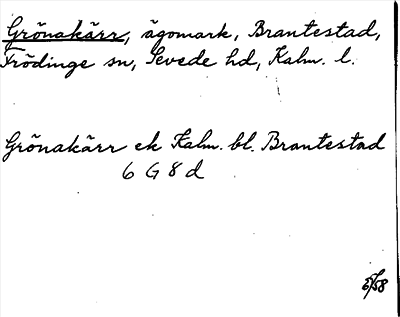 Grönakärr, ägomark, Brantestad,
Frödinge sn, Sevede hd, Kalm. l.
Grönakärr ek Kalm. bl. Brantestad
6 G 8 d